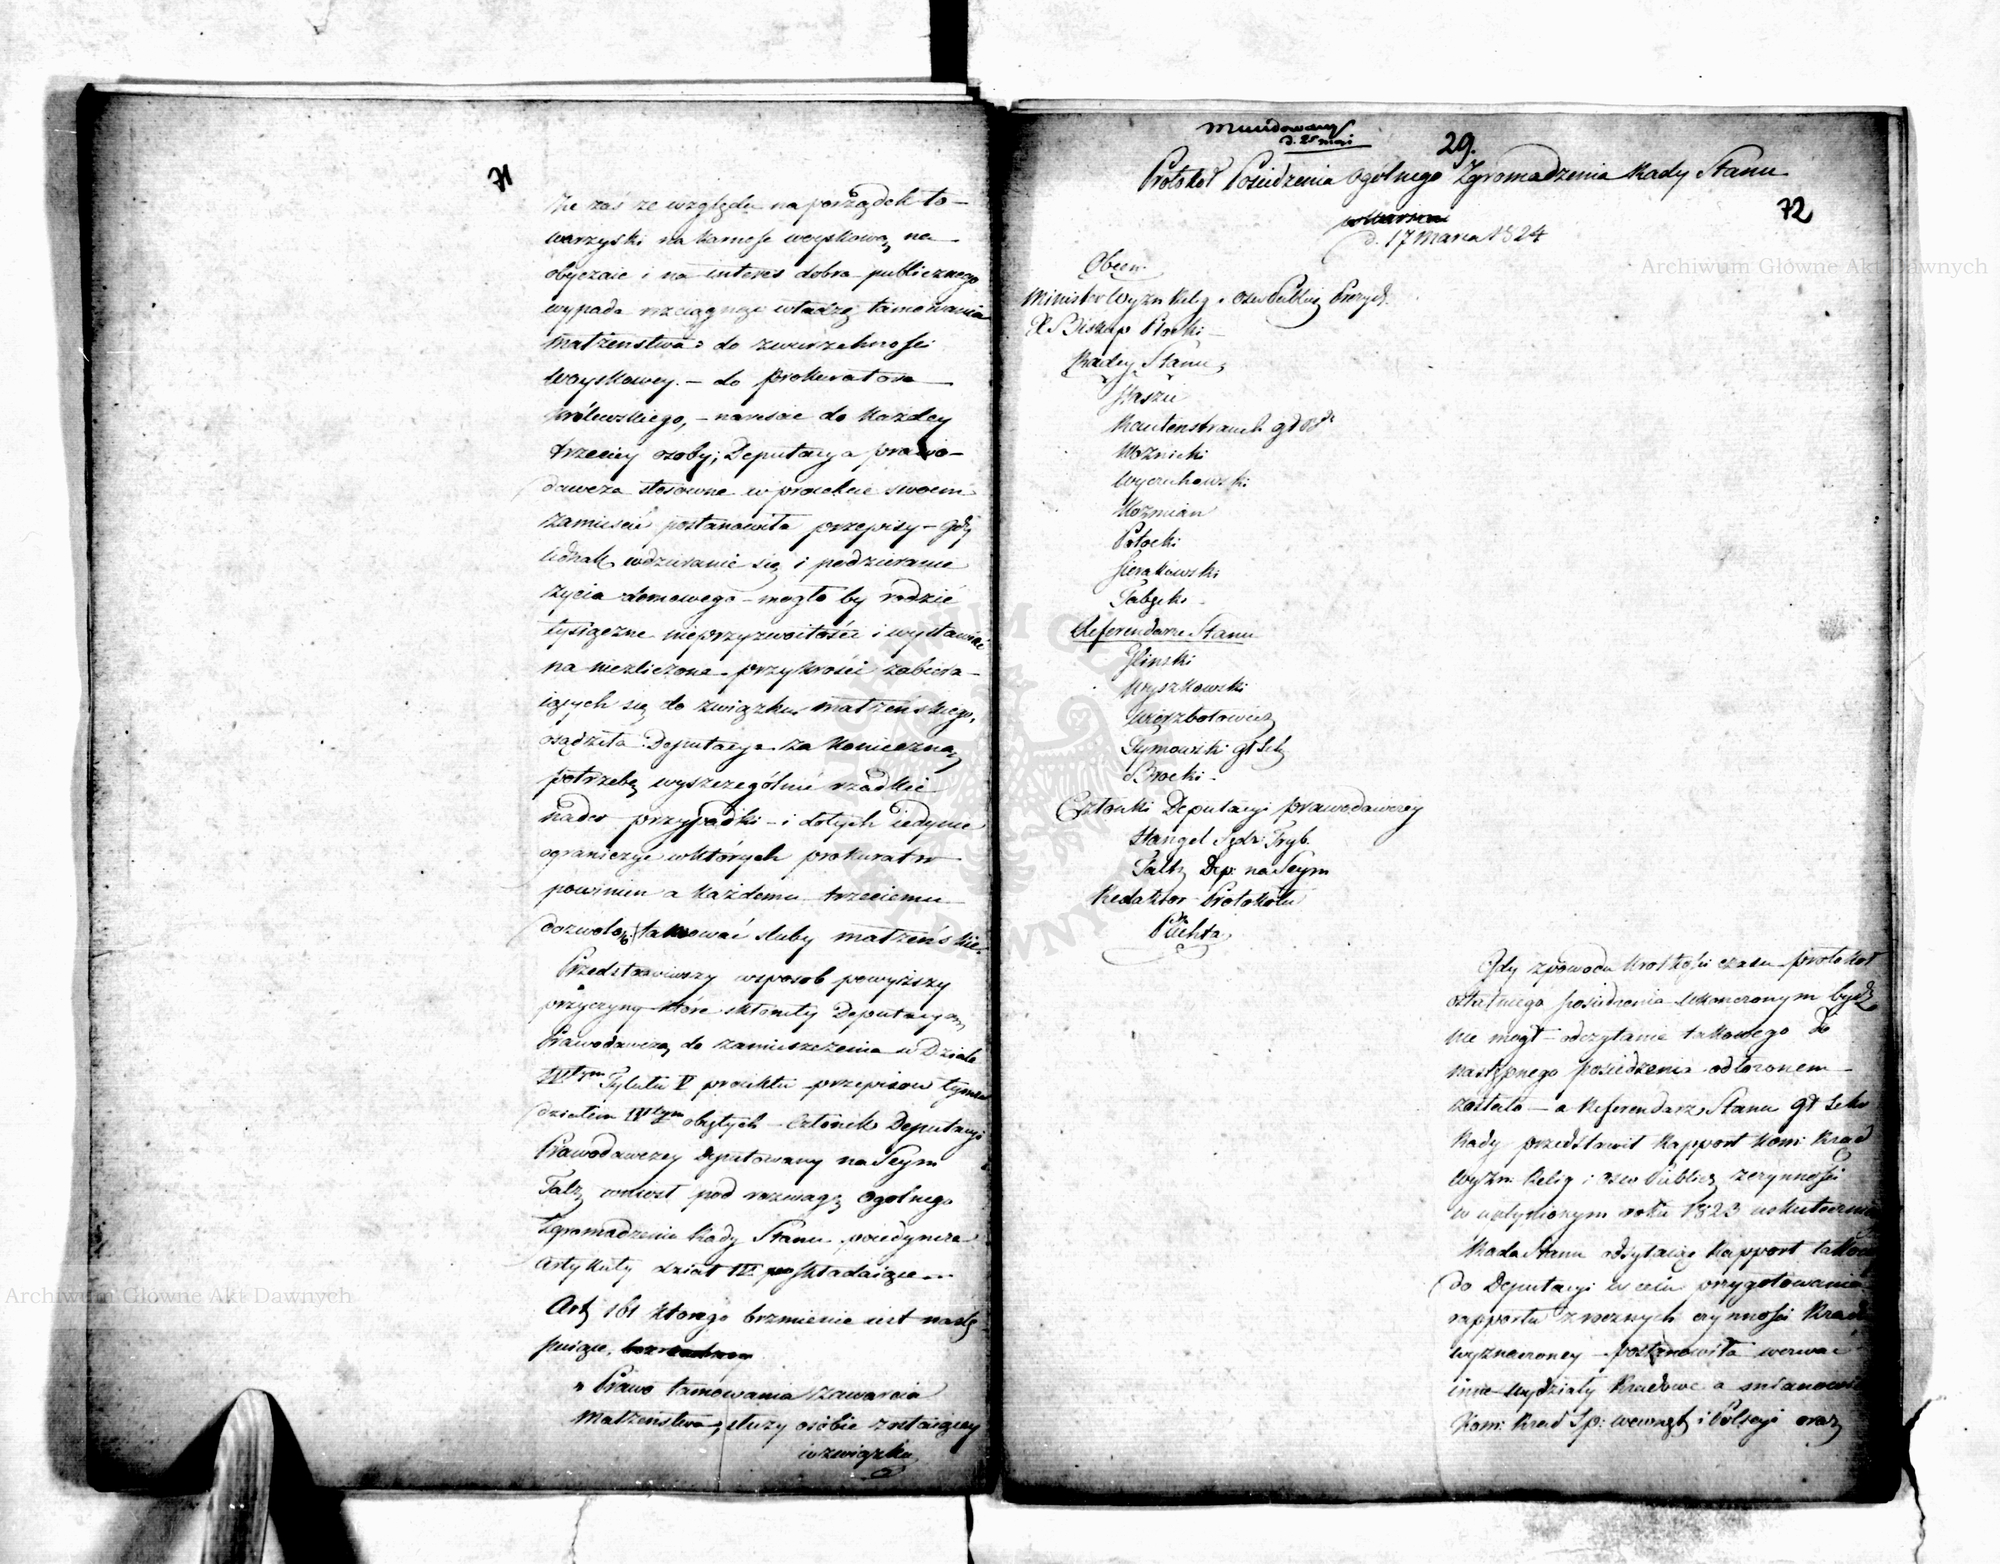 71
że zaś ze względu na porządek to-
warzyski na karność woyskową na
obyczaie i na interes dobra publicznego
wypada rozciągnąć władzę tamowania
małżeństwa: do zwierzchności
woyskowey. – do prokuratora
królewskiego, – nareście do każdey
trzeciey osoby; Deputacya prawo-
dawcza stosowne w proiekcie swoim
zamieścić postanowiła przepisy – gdy
iednak wdzieranie się i podzieranie
życia domowego – mogło by rodzić
tysiączne nieprzyzwoitości i wystawiać
na niezliczone przykrości zabiera-
iących się do związku małżeńskiego,
osądziła Deputacya za konieczną
potrzebę wyszczególnić rzadkie
nader przypadki – i do tych iedynie
ograniczyć w których prokurator
powinien a każdemu trzeciemu
dozwolono tamować śluby małżeńskie.
Przedstawiwszy w sposób powyższy
przyczyny które skłoniły Deputacyą
Prawodawczą do zamieszczenia w Dziale
IVtym Tytułu V proiektu przepisow tymże
działem IVtym obiętych – Członek Deputacyi
Prawodawczey Deputowany na Seym
Faltz wniosł pod rozwagę Ogolnego
Zgromadzenia Rady Stanu poiedyncze
Artykuły dział IV składaiące
Art 161 ktorego brzmienie iest nastę-
puiące,
" Prawo tamowania zawarcia
Małżeństwa, służy osobie zostaiącey
w związku
Mundowany
d. 25 maj
29.
Protokół Posiedzenia Ogólnego Zgromadzenia Rady Stanu
72
d. 17 Marca 1824
Obecni
Minister Wyzn Relig i Ośw Publicz Prezyd.
X Biskup Płocki
Radcy Stanu,
Staszic
Rautenstrauch
Woźnicki
Wyczechowski
Koźmian
Potocki
Sierakowski
Faltzki
Referendarze Stanu
Gliński
Kryszkowski
Wierzbołowicz
Tymowski gł Sek
Brocki
Członki Deputacyi prawodawczey
Stangel Sędz: Tryb.
Faltz Dep: na Seym
Redaktor Protokołu
Puchta
Gdy z powodu krotkości czasu protokoł
ostatniego posiedzenia ukończonym bydź
nie mogł – odczytanie takowego do
następnego posiedzenia odłożonem
zostało – a Referendarz Stanu gł Sekr
Rady przedstawił Rapport Kom: Rząd
Wyzn: Relig i Ośw Publicz z czynności
w upłynionym roku 1823 uskutecznio
Rada Stanu odsyłaiąc Rapport takow
do Deputacyi w celu przygotowania
rapportu z rocznych czynności Rząd
wyznaczoney – postanowiła wezwać
inne Wydziały Rządowe a mianowi
Kom: Rząd Sp: wewnętrz i Policyi oraz